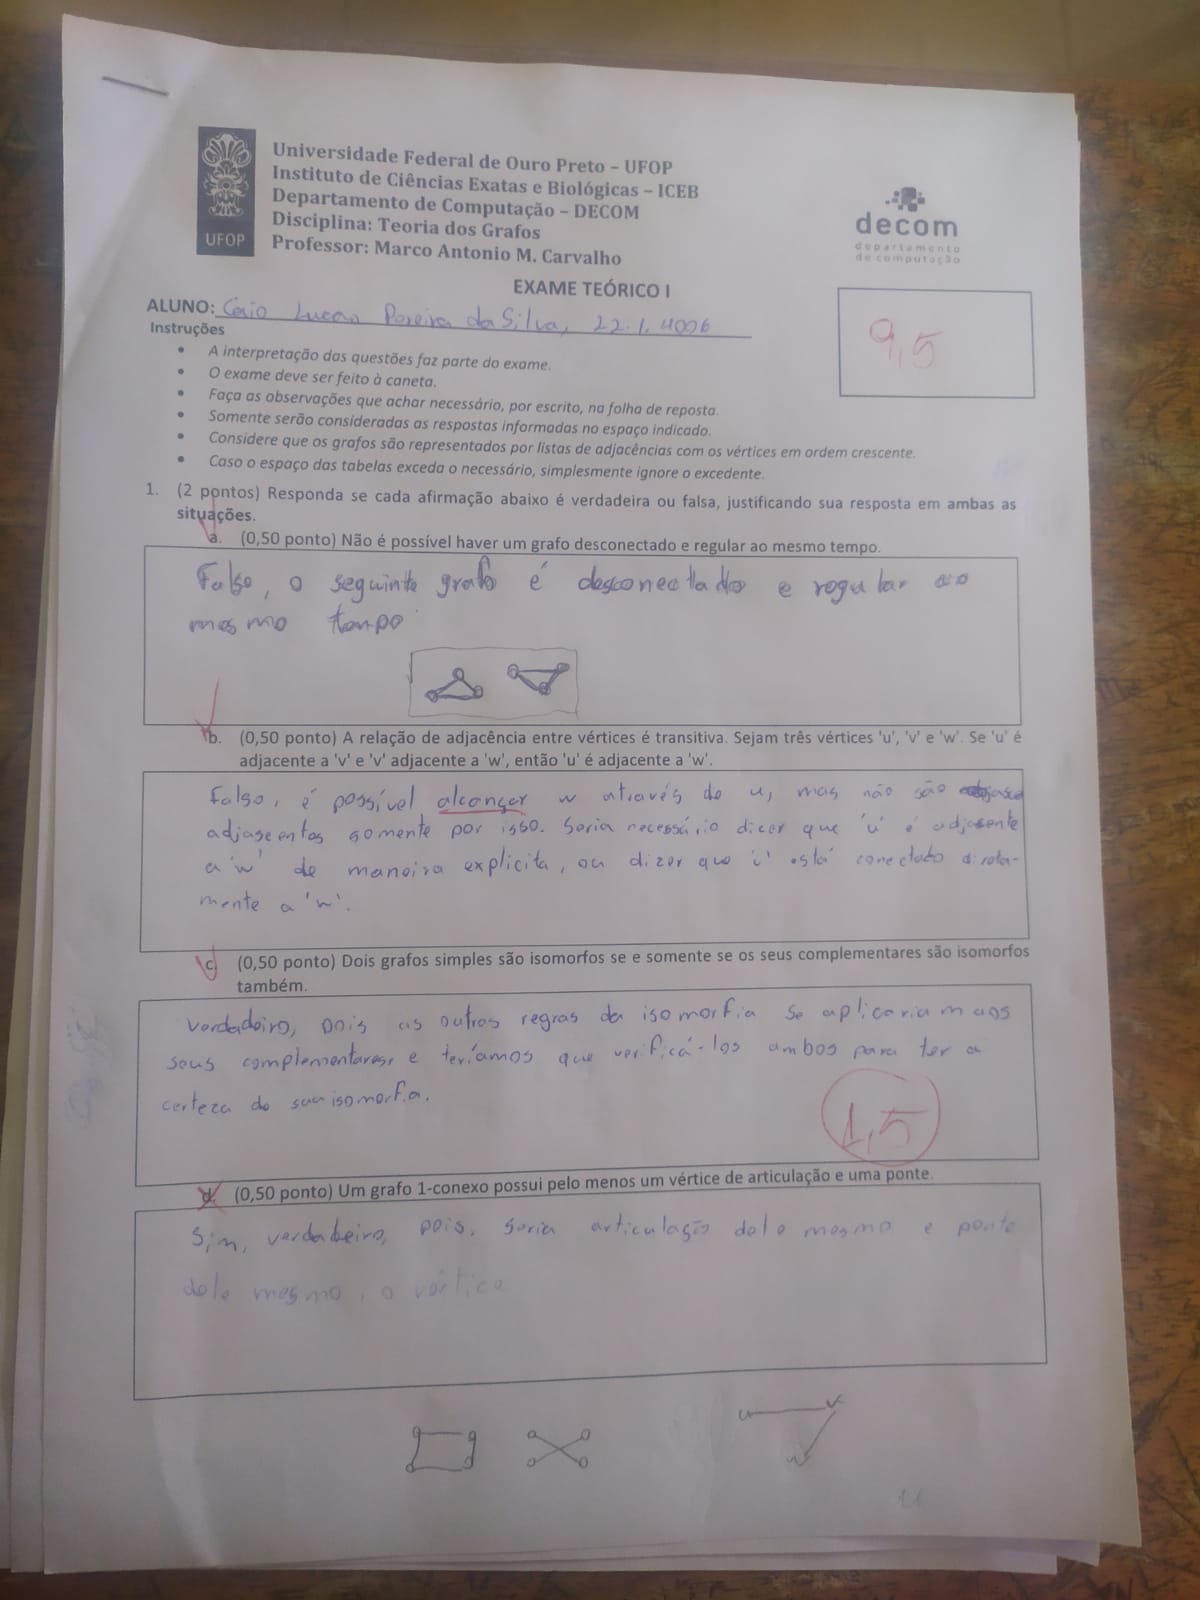 Universidade Federal de Ouro Preto – UFOP
Instituto de Ciências Exatas e Biológicas – ICEB
Departamento de Computação – DECOM
Disciplina: Teoria dos Grafos
Professor: Marco Antonio M. Carvalho
UFOP
decom
departamento
de computação
EXAME TEÓRICO I
ALUNO: Caio Lucas Pereira da Silva, 22.1.4006
9,5
Instruções
• A interpretação das questões faz parte do exame.
• O exame deve ser feito à caneta.
• Faça as observações que achar necessário, por escrito, na folha de reposta.
• Somente serão consideradas as respostas informadas no espaço indicado.
• Considere que os grafos são representados por listas de adjacências com os vértices em ordem crescente.
• Caso o espaço das tabelas exceda o necessário, simplesmente ignore o excedente.
1. (2 pontos) Responda se cada afirmação abaixo é verdadeira ou falsa, justificando sua resposta em ambas as
situações.
a. (0,50 ponto) Não é possível haver um grafo desconectado e regular ao mesmo tempo.
Falso, o seguinte grafo é desconectado e regular ao
mesmo tempo
b. (0,50 ponto) A relação de adjacência entre vértices é transitiva. Sejam três vértices 'u', 'v' e 'w'. Se 'u' é
adjacente a 'v' e 'v' adjacente a 'w', então 'u' é adjacente a 'w'.
Falso, é possível alcançar w através de u, mas não são
adjasentes somente por isso. Seria necessário dizer que 'u' é adjasente
a 'w' de maneira explicita, ou dizer que está conectado direta-
mente a 'w'.
c. (0,50 ponto) Dois grafos simples são isomorfos se e somente se os seus complementares são isomorfos
também.
Verdadeiro, pois as outras regras da isomorfia se aplicariam aos
seus complementares, e teríamos que verificá-los ambos para ter a
certeza de sua isomorfia.
1,5
d. (0,50 ponto) Um grafo 1-conexo possui pelo menos um vértice de articulação e uma ponte.
Sim, verdadeiro, pois, seria articulação dele mesmo e ponte
dele mesmo, o vértice
u v
w